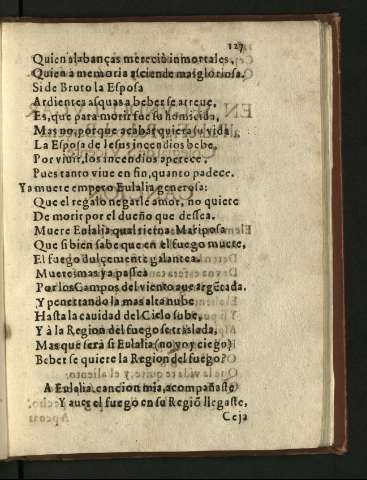 127
Quien alabanças mereciò inmortales,
Quien à memoria asciende mas gloriosa.
Si de Bruto la Esposa
Ardientes asquas a beber se atreue,
Es, que para morir fue su homicida,
Mas no, porque acabar quiera su vida
La Esposa de Iesus incendios bebe,
Por viuir, los incendios apetece,
Pues tanto viue en fin, quanto padece.
Ya muere empero Eulalia generosa:
Que el regalo negarle amor, no quiere
De morir por el dueño que dessea.
Muere Eulalia qual tierna Mariposa
Que si bien sabe que en el fuego muere,
El fuego dulcemente galantea.
Muere; mas ya passea
Por los Campos del viento que argētada.
Y penetrando la mas alta nube
Hasta la cauidad del Cielo sube,
Y à la Region del fuego se traslada,
Mas que serà si Eulalia (no voy ciego)
Beber se quiere la Region del fuego?
A Eulalia, cancion mia, acompañaste
Y aues el fuego en su Regiō llegaste,
Ceja